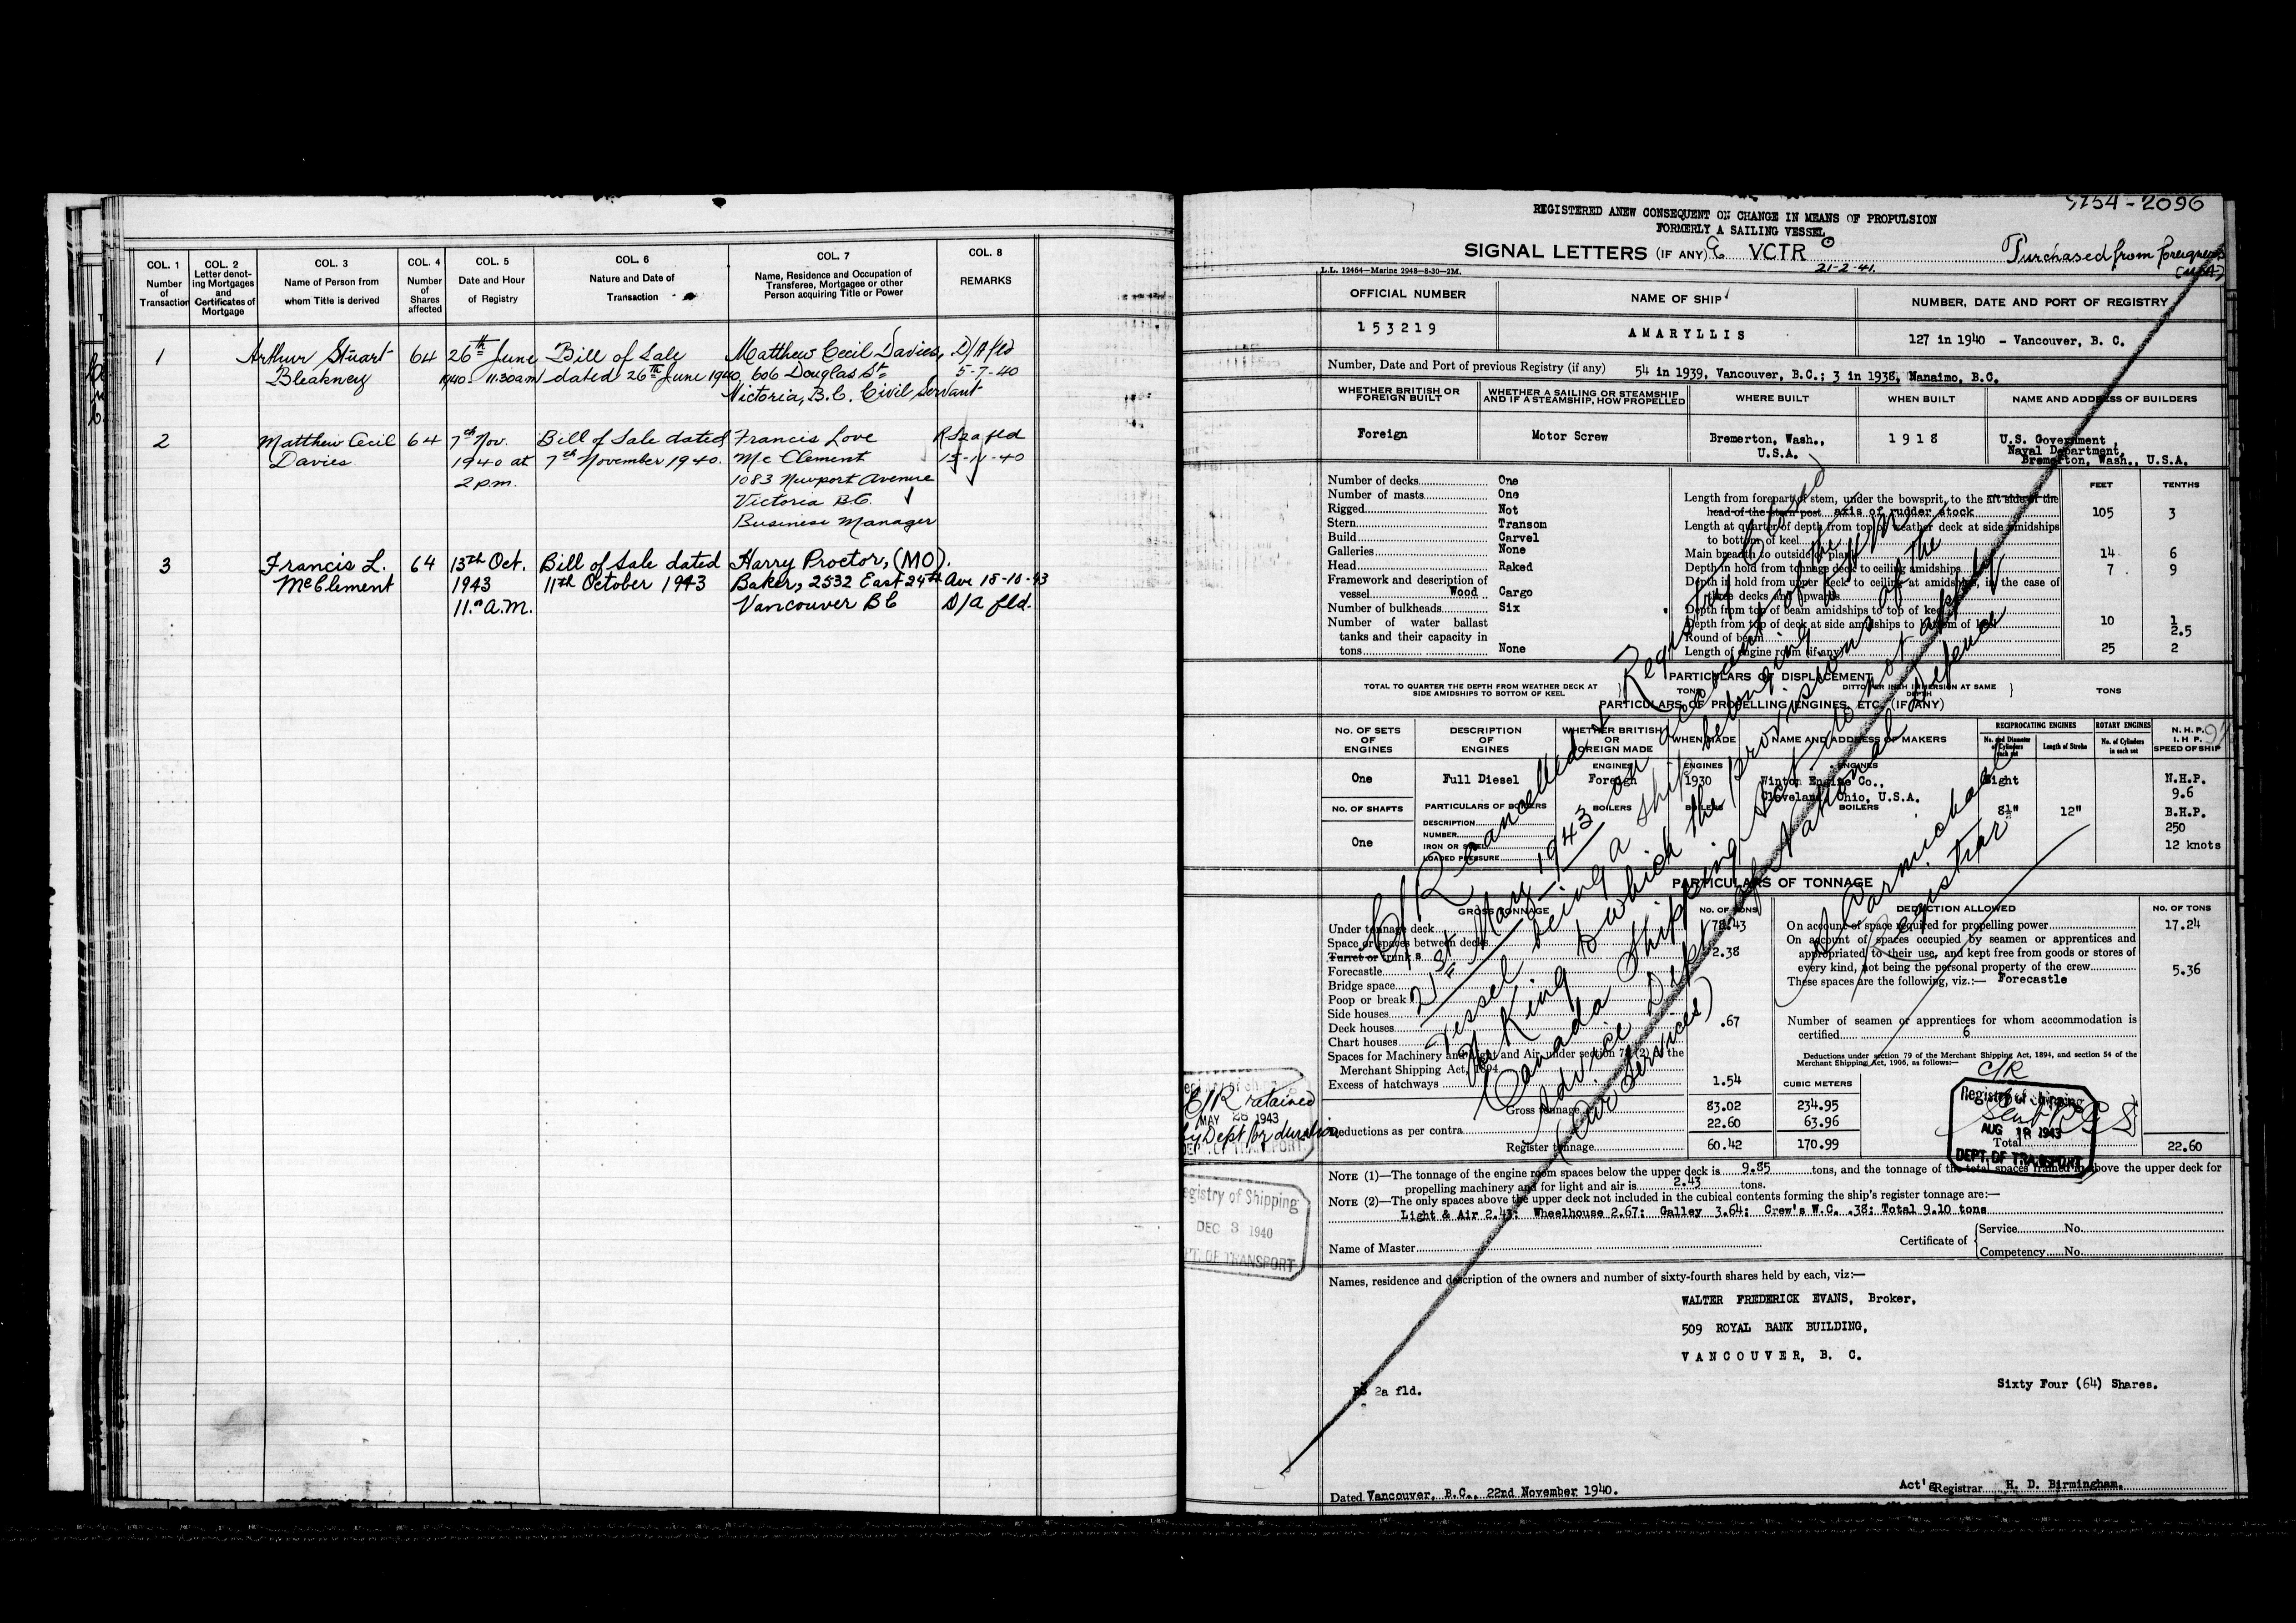 COL. 1
Number of Transaction
COL. 2
Letter denoting Mortgages and Certificates of Mortgage
COL. 3
Name of Person from whom Title is derived
COL. 4
Number of Shares affected
COL. 5
Date and Hour of Registry
COL. 6
Nature and Date of Transaction
COL. 7
Name, Residence and Occupation of Transferee, Mortgagee or other Person acquiring Title or Power
COL. 8
REMARKS
1 Arthur Stuart 64 26th June Bill of Sale Matthew Cecil Davies, D/A fld
Bleakney 1940 11:30am dated 26th June 1940 606 Douglas St. 5-7-40
Victoria, B.C. Civil Servant
2 Matthew Cecil 64 7th Nov. Bill of Sale dated Francis Love RS2a fld
Davies 1940 at 7th November 1940. McClement 15-11-40
2 p.m. 1083 Newport Avenue
Victoria B.C.
Business Manager
3 Francis L. 64 13th Oct. Bill of Sale dated Harry Proctor, (MO).
McClement 1943 11th October 1943 Baker, 2532 East 24th Ave 15-10-43
11.00 A.M. Vancouver BC D/A fld.
REGISTERED ANEW CONSEQUENT ON CHANGE IN MEANS OF PROPULSION
FORMERLY A SAILING VESSEL
SIGNAL LETTERS (IF ANY) VCTR
21-2-41.
Purchased from foreigners
(USA)
L.L. 12464—Marine 2948—8-30—2M.
OFFICIAL NUMBER NAME OF SHIP NUMBER, DATE AND PORT OF REGISTRY
153219 AMARYLLIS 127 in 1940 - Vancouver, B. C.
Number, Date and Port of previous Registry (if any) 54 in 1939, Vancouver, B.C.; 3 in 1938, Nanaimo, B.C.
WHETHER BRITISH OR FOREIGN BUILT
WHETHER A SAILING OR STEAMSHIP AND IF A STEAMSHIP, HOW PROPELLED
WHERE BUILT
WHEN BUILT
NAME AND ADDRESS OF BUILDERS
Foreign Motor Screw Bremerton, Wash., 1918 U.S. Government,
U.S.A. Naval Department,
Bremerton, Wash., U.S.A.
Number of decks One
Number of masts One
Rigged Not
Stern Transom
Build Carvel
Galleries None
Head Raked
Framework and description of
vessel Wood Cargo
Number of bulkheads Six
Number of water ballast
tanks and their capacity in
tons None
FEET TENTHS
Length from forepart of stem, under the bowsprit, to the aft side of the
head of the stern post axis of rudder stock 105 3
Length at quarter of depth from top of weather deck at side amidships
to bottom of keel
Main breadth to outside of plank 14 6
Depth in hold from tonnage deck to ceiling amidships 7 9
Depth in hold from upper deck to ceiling at amidships, in the case of
three decks and upwards
Depth from top of beam amidships to top of keel
Depth from top of deck at side amidships to bottom of keel 10 1
Round of beam 2.5
Length of engine room (if any) 25 2
PARTICULARS OF DISPLACEMENT
TOTAL TO QUARTER THE DEPTH FROM WEATHER DECK AT SIDE AMIDSHIPS TO BOTTOM OF KEEL
TONS
DITTO PER INCH IMMERSION AT SAME DEPTH
TONS
PARTICULARS OF PROPELLING ENGINES, ETC. (IF ANY)
NO. OF SETS OF ENGINES
DESCRIPTION OF ENGINES
WHETHER BRITISH OR FOREIGN MADE
WHEN MADE
NAME AND ADDRESS OF MAKERS
RECIPROCATING ENGINES
No. and Diameter of Cylinders each set
Length of Stroke
ROTARY ENGINES
No. of Cylinders in each set
N. H. P.
I. H. P.
SPEED OF SHIP
ENGINES ENGINES ENGINES
One Full Diesel Foreign 1930 Winton Engine Co., Eight N.H.P.
Cleveland, Ohio, U.S.A. 9.6
NO. OF SHAFTS PARTICULARS OF BOILERS BOILERS BOILERS BOILERS 8½" 12" B.H.P.
DESCRIPTION
NUMBER 250
One IRON OR STEEL 12 knots
LOADED PRESSURE
PARTICULARS OF TONNAGE
GROSS TONNAGE NO. OF TONS
Under tonnage deck 78.43
Space or spaces between decks
Turret or trunks 2.38
Forecastle
Bridge space
Poop or break
Side houses
Deck houses .67
Chart houses
Spaces for Machinery and Light and Air, under section 78 (2) of the
Merchant Shipping Act, 1894
Excess of hatchways 1.54 CUBIC METERS
Gross tonnage 83.02 234.95
Deductions as per contra 22.60 63.96
Register tonnage 60.42 170.99
DEDUCTION ALLOWED NO. OF TONS
On account of space required for propelling power 17.24
On account of spaces occupied by seamen or apprentices and
appropriated to their use, and kept free from goods or stores of
every kind, not being the personal property of the crew 5.36
These spaces are the following, viz.:— Forecastle
Number of seamen or apprentices for whom accommodation is
certified 6
Deductions under section 79 of the Merchant Shipping Act, 1894, and section 54 of the
Merchant Shipping Act, 1906, as follows:—
C/R
Registry of Shipping
AUG 18 1943
DEPT. OF TRANSPORT
Total 22.60
C/R cancelled & Registry closed
21st May 1943 on account of the
vessel being a ship belonging to H.M.
the King to which the provisions of the
Canada Shipping Act do not apply
Advice Dept of National Defence
(Air Services)
A Carmichael
Registrar
C/R retained
MAY 26 1943
by Dept for duration
DEPT. OF TRANSPORT
Registry of Shipping
DEC 3 1940
DEPT. OF TRANSPORT
NOTE (1)—The tonnage of the engine room spaces below the upper deck is 9.85 tons, and the tonnage of the total spaces framed in above the upper deck for
propelling machinery and for light and air is 2.43 tons.
NOTE (2)—The only spaces above the upper deck not included in the cubical contents forming the ship's register tonnage are:—
Light & Air 2.43; Wheelhouse 2.67; Galley 3.64; Crew's W.C. .38; Total 9.10 tons
Name of Master Certificate of Service No.
Competency No.
Names, residence and description of the owners and number of sixty-fourth shares held by each, viz:—
WALTER FREDERICK EVANS, Broker,
509 ROYAL BANK BUILDING,
VANCOUVER, B. C.
RS 2a fld. Sixty Four (64) Shares.
Dated Vancouver, B.C., 22nd November 1940. Act'g Registrar H. D. Birmingham.